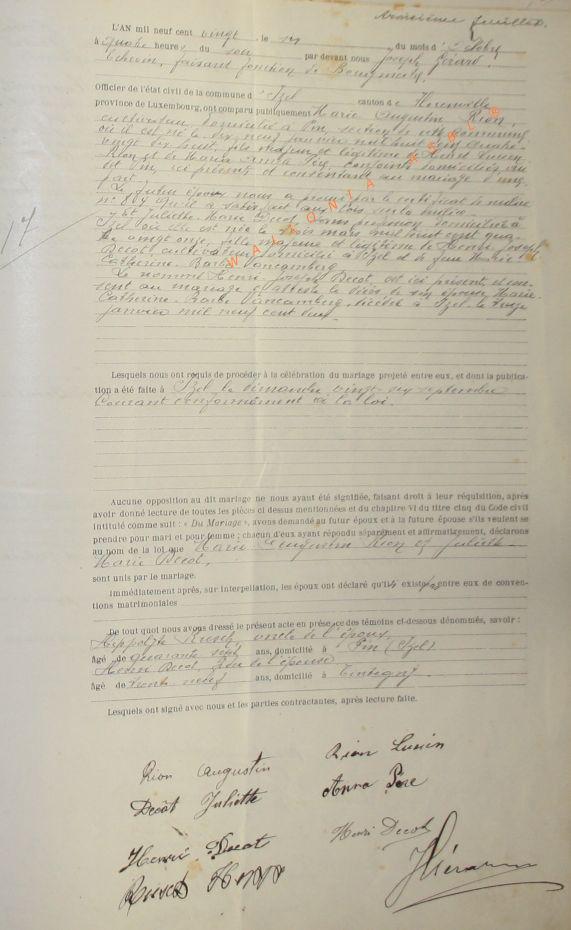 troisième feuillet.
L'AN mil neuf cent vingt, le six du mois d'octobre
à quatre heures du soir par devant nous Joseph Gérard,
Echevin, faisant fonction de Bourgmestre
Officier de l'état civil de la commune d'Izel canton de Florenville
province de Luxembourg, ont comparu publiquement Marie Augustin Rion,
cultivateur, domicilié à Pin, section de cette commune,
où il est né le six janvier mil huit cent quatre-
vingt dix huit, fils majeur et légitime de Lucien
Rion et de Maria Anna Père, conjoints domiciliés au
dit Pin, ici présents et consentants au mariage d'une
part.
Le futur époux nous a prouvé par le certificat de milice
n° 84 qu'il a satisfait aux lois sur la milice
17
Et Juliette Marie Decot, sans profession, domiciliée à
Izel où elle est née le trois mars mil huit cent qua-
tre vingt onze, fille majeure et légitime de Henri Joseph
Decot, cultivateur domicilié à Izel et de feue Marie
Catherine Barbe Vancamberg.
Le nommé Henri Joseph Decot, est ici présent, et con-
sent au mariage et atteste le décès de son épouse Marie-
Catherine-Barbe Vancamberg, décédée à Izel le treize
janvier mil neuf cent deux.
WALLONIA GENWEB
Lesquels nous ont requis de procéder à la célébration du mariage projeté entre eux, et dont la publica-
tion a été faite à Izel le dimanche vingt-six septembre
courant conformément à la loi.
Aucune opposition au dit mariage ne nous ayant été signifiée, faisant droit à leur réquisition, après
avoir donné lecture de toutes les pièces ci dessus mentionnées et du chapitre VI du titre cinq du Code civil
intitulé comme suit : « Du Mariage », avons demandé au futur époux et à la future épouse s'ils veulent se
prendre pour mari et pour femme ; chacun d'eux ayant répondu séparément et affirmativement, déclarons
au nom de la loi que Marie Augustin Rion et Juliette
Marie Decot,
sont unis par le mariage.
Immédiatement après, sur interpellation, les époux ont déclaré qu'il existe entre eux de conven-
tions matrimoniales
De tout quoi nous avons dressé le présent acte en présence des témoins ci-dessous dénommés, savoir :
Hippolyte oncle de l'époux
âgé de quarante sept ans, domicilié à Pin (Izel)
Henri Decot, frère de l'épouse
âgé de trente neuf ans, domicilié à Tintigny.
Lesquels ont signé avec nous et les parties contractantes, après lecture faite.
Rion Augustin Rion Lucien
Decot Juliette Anna Père
Henri Decot Henri Decot